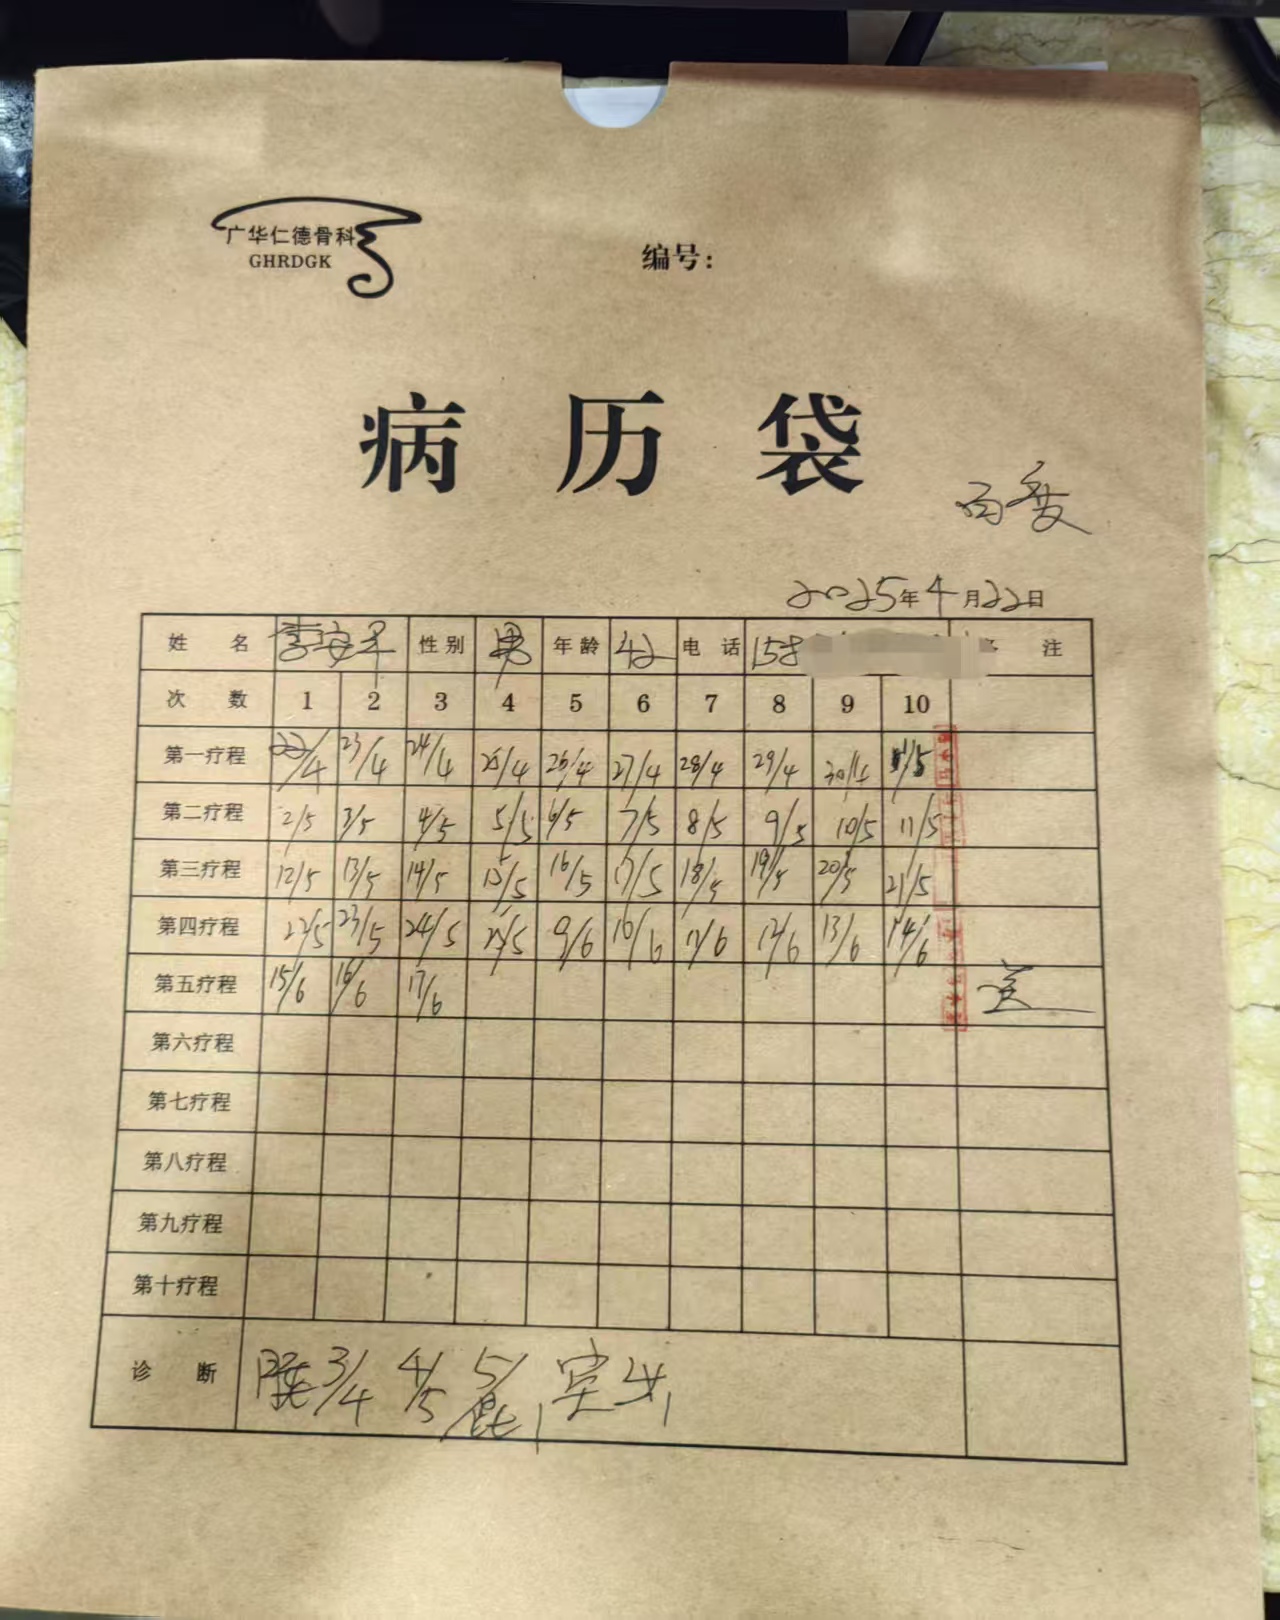 广华仁德骨科
GHRDGK
编号:
病历袋
百度
2025年4月22日
姓名 李安平 性别 男 年龄 42 电话 158 注
次数 1 2 3 4 5 6 7 8 9 10
第一疗程 22/4 23/4 24/4 25/4 26/4 27/4 28/4 29/4 30/4 1/5
第二疗程 2/5 3/5 4/5 5/5 6/5 7/5 8/5 9/5 10/5 11/5
第三疗程 12/5 13/5 14/5 15/5 16/5 17/5 18/5 19/5 20/5 21/5
第四疗程 22/5 23/5 24/5 25/5 9/6 10/6 11/6 12/6 13/6 14/6
第五疗程 15/6 16/6 17/6 送
第六疗程
第七疗程
第八疗程
第九疗程
第十疗程
诊断 腰3/4 4/5 5/骶1